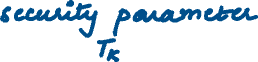 security parameter
Tk